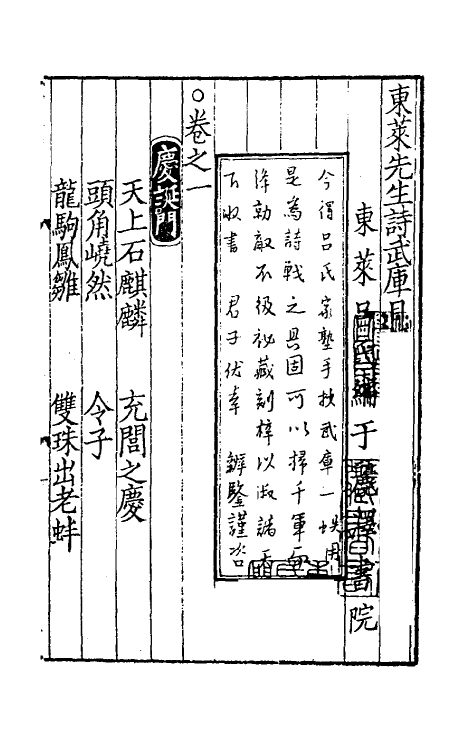 東萊先生詩武庫目
東萊呂氏編于麗澤書院
今得呂氏家塾手抄武庫一帙用
是為詩戰之具固可以掃千軍而
降勍敵不後祕藏刻梓以淑諸天
下收書君子伏幸詳鑒謹咨
○卷之一
慶誕門
天上石麒麟 充閭之慶
頭角嶢然 令子
龍駒鳳雛 雙珠出老蚌